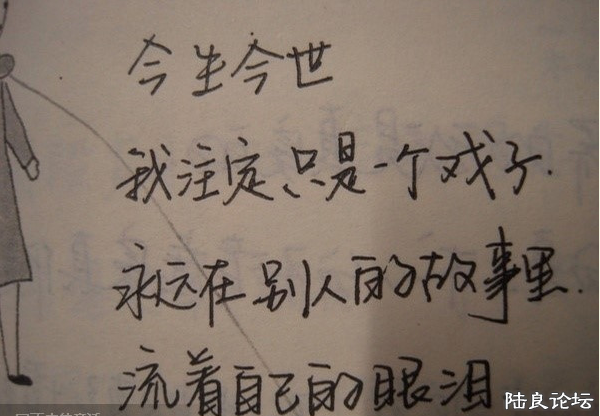 今生今世
我注定、只是一个戏子.
永远在别人的故事里.
流着自己的眼泪
陆良论坛